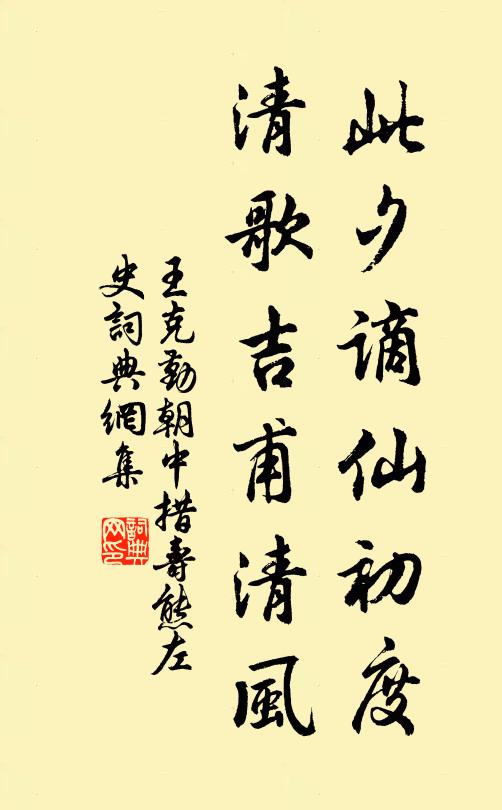 此夕谪仙初度
清歌吉甫清風
王克勤朝中措壽熊左
史詞典網集
詞典
网印